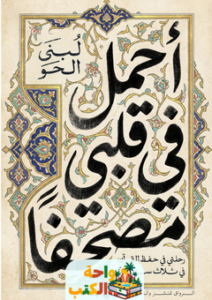 لُبنَى
الحَو
أحمل
في قلبي
مصحفًا
رحلتي في حفظ
في ثلاث
واحة
الكتب